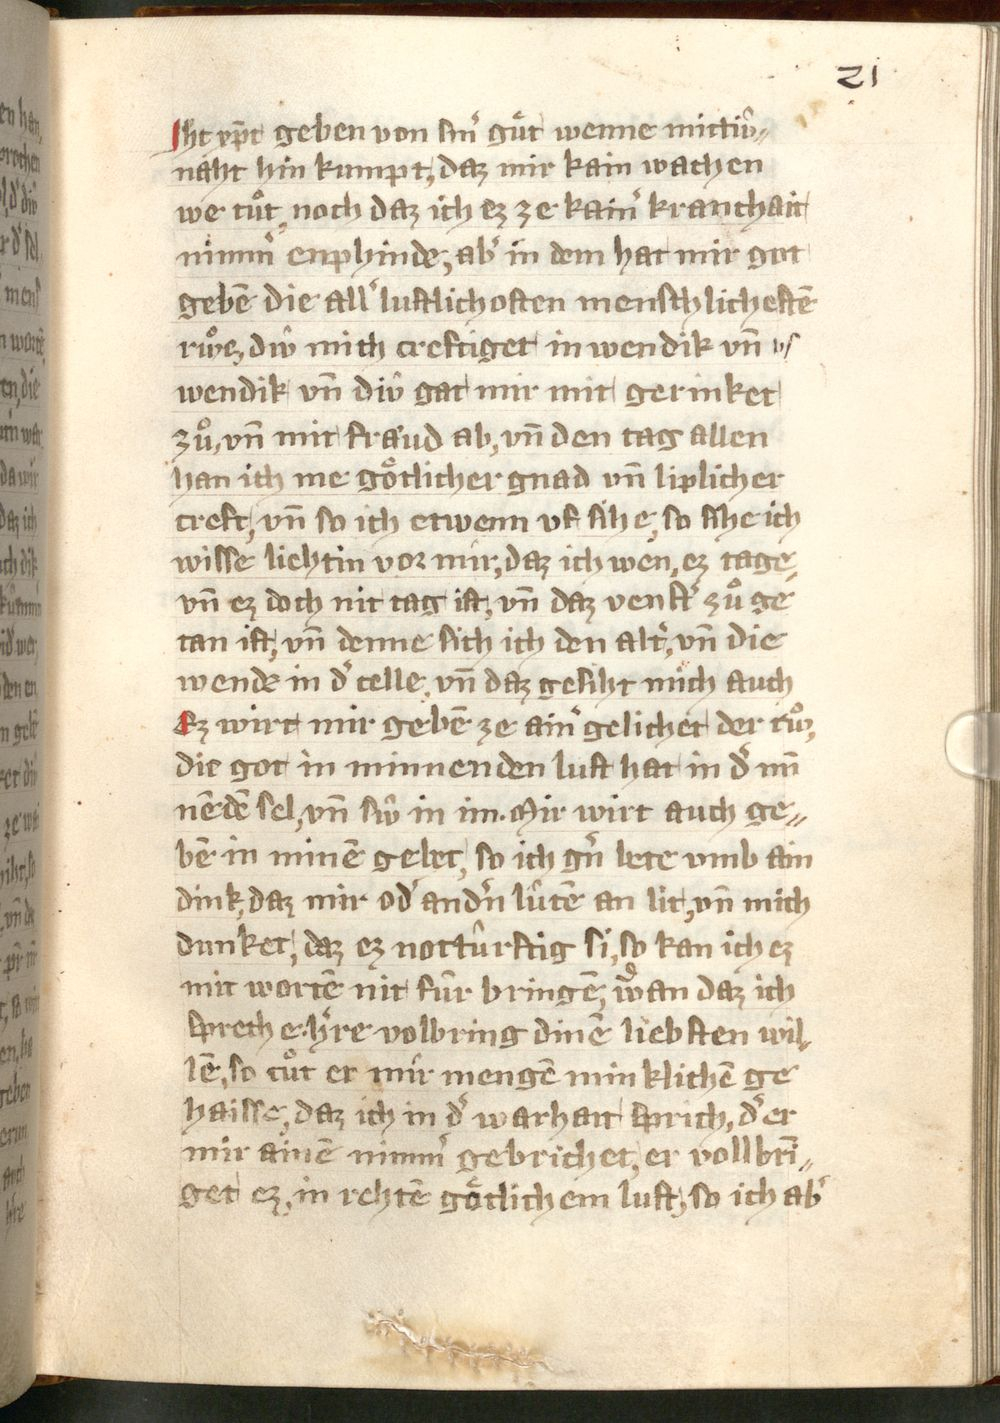 21
Iht xp̄c geben von sinˀ guͤt wenne mittiv̂⸗
naht hin kumpt, daz mir kain wachen
we tuͦt, noch daz ich ez ze kainˀ kranchait
nimmˀ enphinde, abˀ in dem hat mir got
gebē die allˀ lustlichosten menschlichestē
rwͦe, div̂ mich creftiget inwendik vn̄ vs
wendik vn̄ div̂ gat mir mit gerinket
zuͦ, vn̄ mit fraͤud ab, vn̄ den tag allen
han ich me goͤtlicher gnad vn̄ liplicher
creft, vn̄ so ich etwenn vf sihe, so sihe ich
wisse liehtin vor mir, daz ich wen, ez tage,
vn̄ ez doch nit tag ist, vn̄ daz venstˀ zuͦ ge
tan ist, vn̄ denne sich ich den altˀ, vn̄ die
wende in dˀ celle, vn̄ daz gesiht mich auch
Ez wirt mir gebē ze ainˀ gelichet der rwͦ,
die got in minnenden lust hat in dˀ min̄
nēdē sel, vn̄ siv̂ in im. Mir wirt auch ge⸗
bē in minē gebet, so ich gˀn bete vmb ain
dink, daz mir odˀ andˀn lv̂tē an lit, vn̄ mich
dunket, daz ez notturftig si, so kan ich ez
mit wortē nit fûr bringē, wan daz ich
spreche. hˀre volbring dinē liebsten wil⸗
lē, so tuͦt er mir mengē minklichē ge
haisse, daz ich in dˀ warhait sprich, dˀ er
mir ainē nimmˀ gebrichet, er vollbri⸗
get ez, in rehtē goͤtlichem lust, so ich abˀ